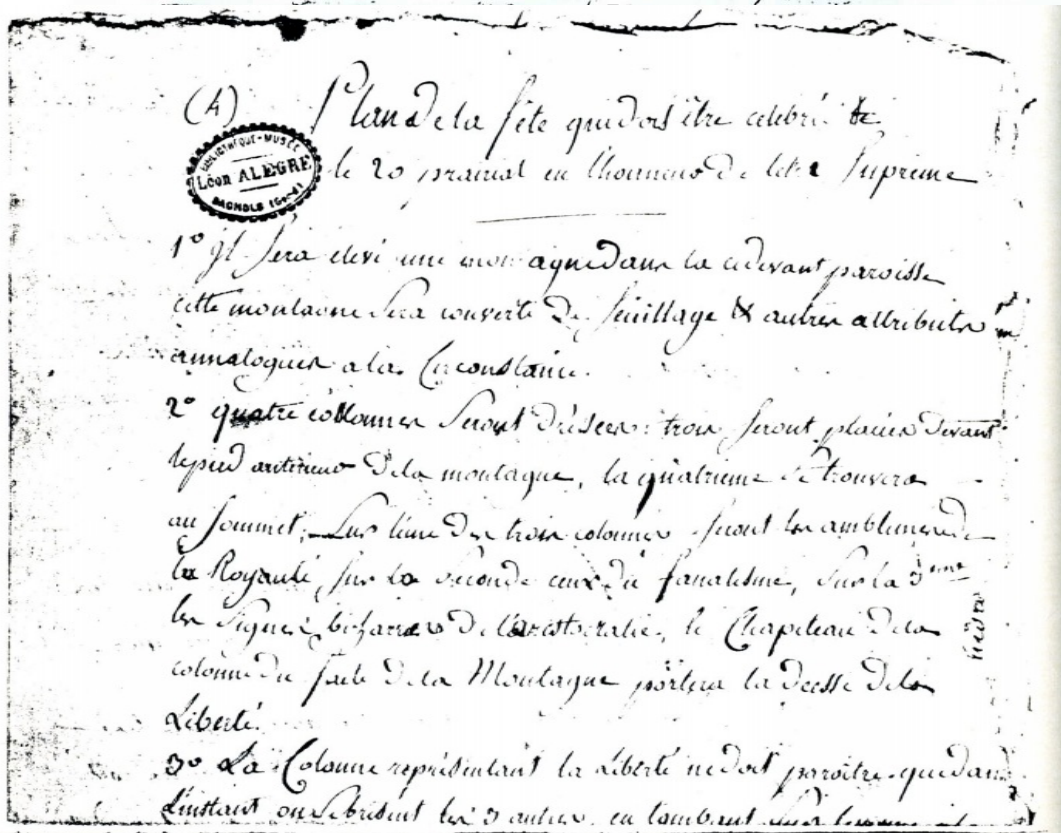 (A) Plan de la fête qui doit être celebré
le 20 prairial en lhonneur de letre Suprême
BIBLIOTHÈQUE-MUSÉE
Léon ALEGRE
BAGNOLS (Gard)
1º Il Sera elevé une montagne dans la cidevant paroisse
cette montagne Sera couverte de feuillage & autres attributs
annalogues a la Circonstance.
2º quatre collonnes Seront dréssees: trois Seront placées devant
le pied antérieur de la montagne, la quatrieme se trouvera
au Sommet, Sur lune des trois colonnes Seront les amblemes de
la Royauté, Sur la seconde ceux du fanatisme, Sur la 3eme
les Signes bizarres de l'aristocratie, le Chapiteau de la
colonne du faite de la Montagne portera la déesse de la
Liberté.
3º La Colonne représentant la Liberté ne doit paroître que dans
L'instant ou Se brisent les 3 autres en tombant